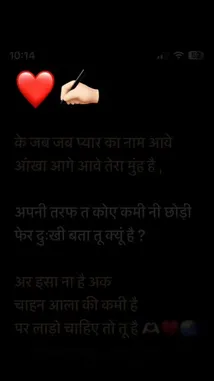 10:14
के जब जब प्यार का नाम आवे
आंखा आगे आवे तेरा मुंह है ,
अपनी तरफ त कोए कमी नी छोड़ी
फेर दुःखी बता तू क्यूं है ?
अर इसा ना है अक
चाहन आला की कमी है
पर लाडो चाहिए तो तू है